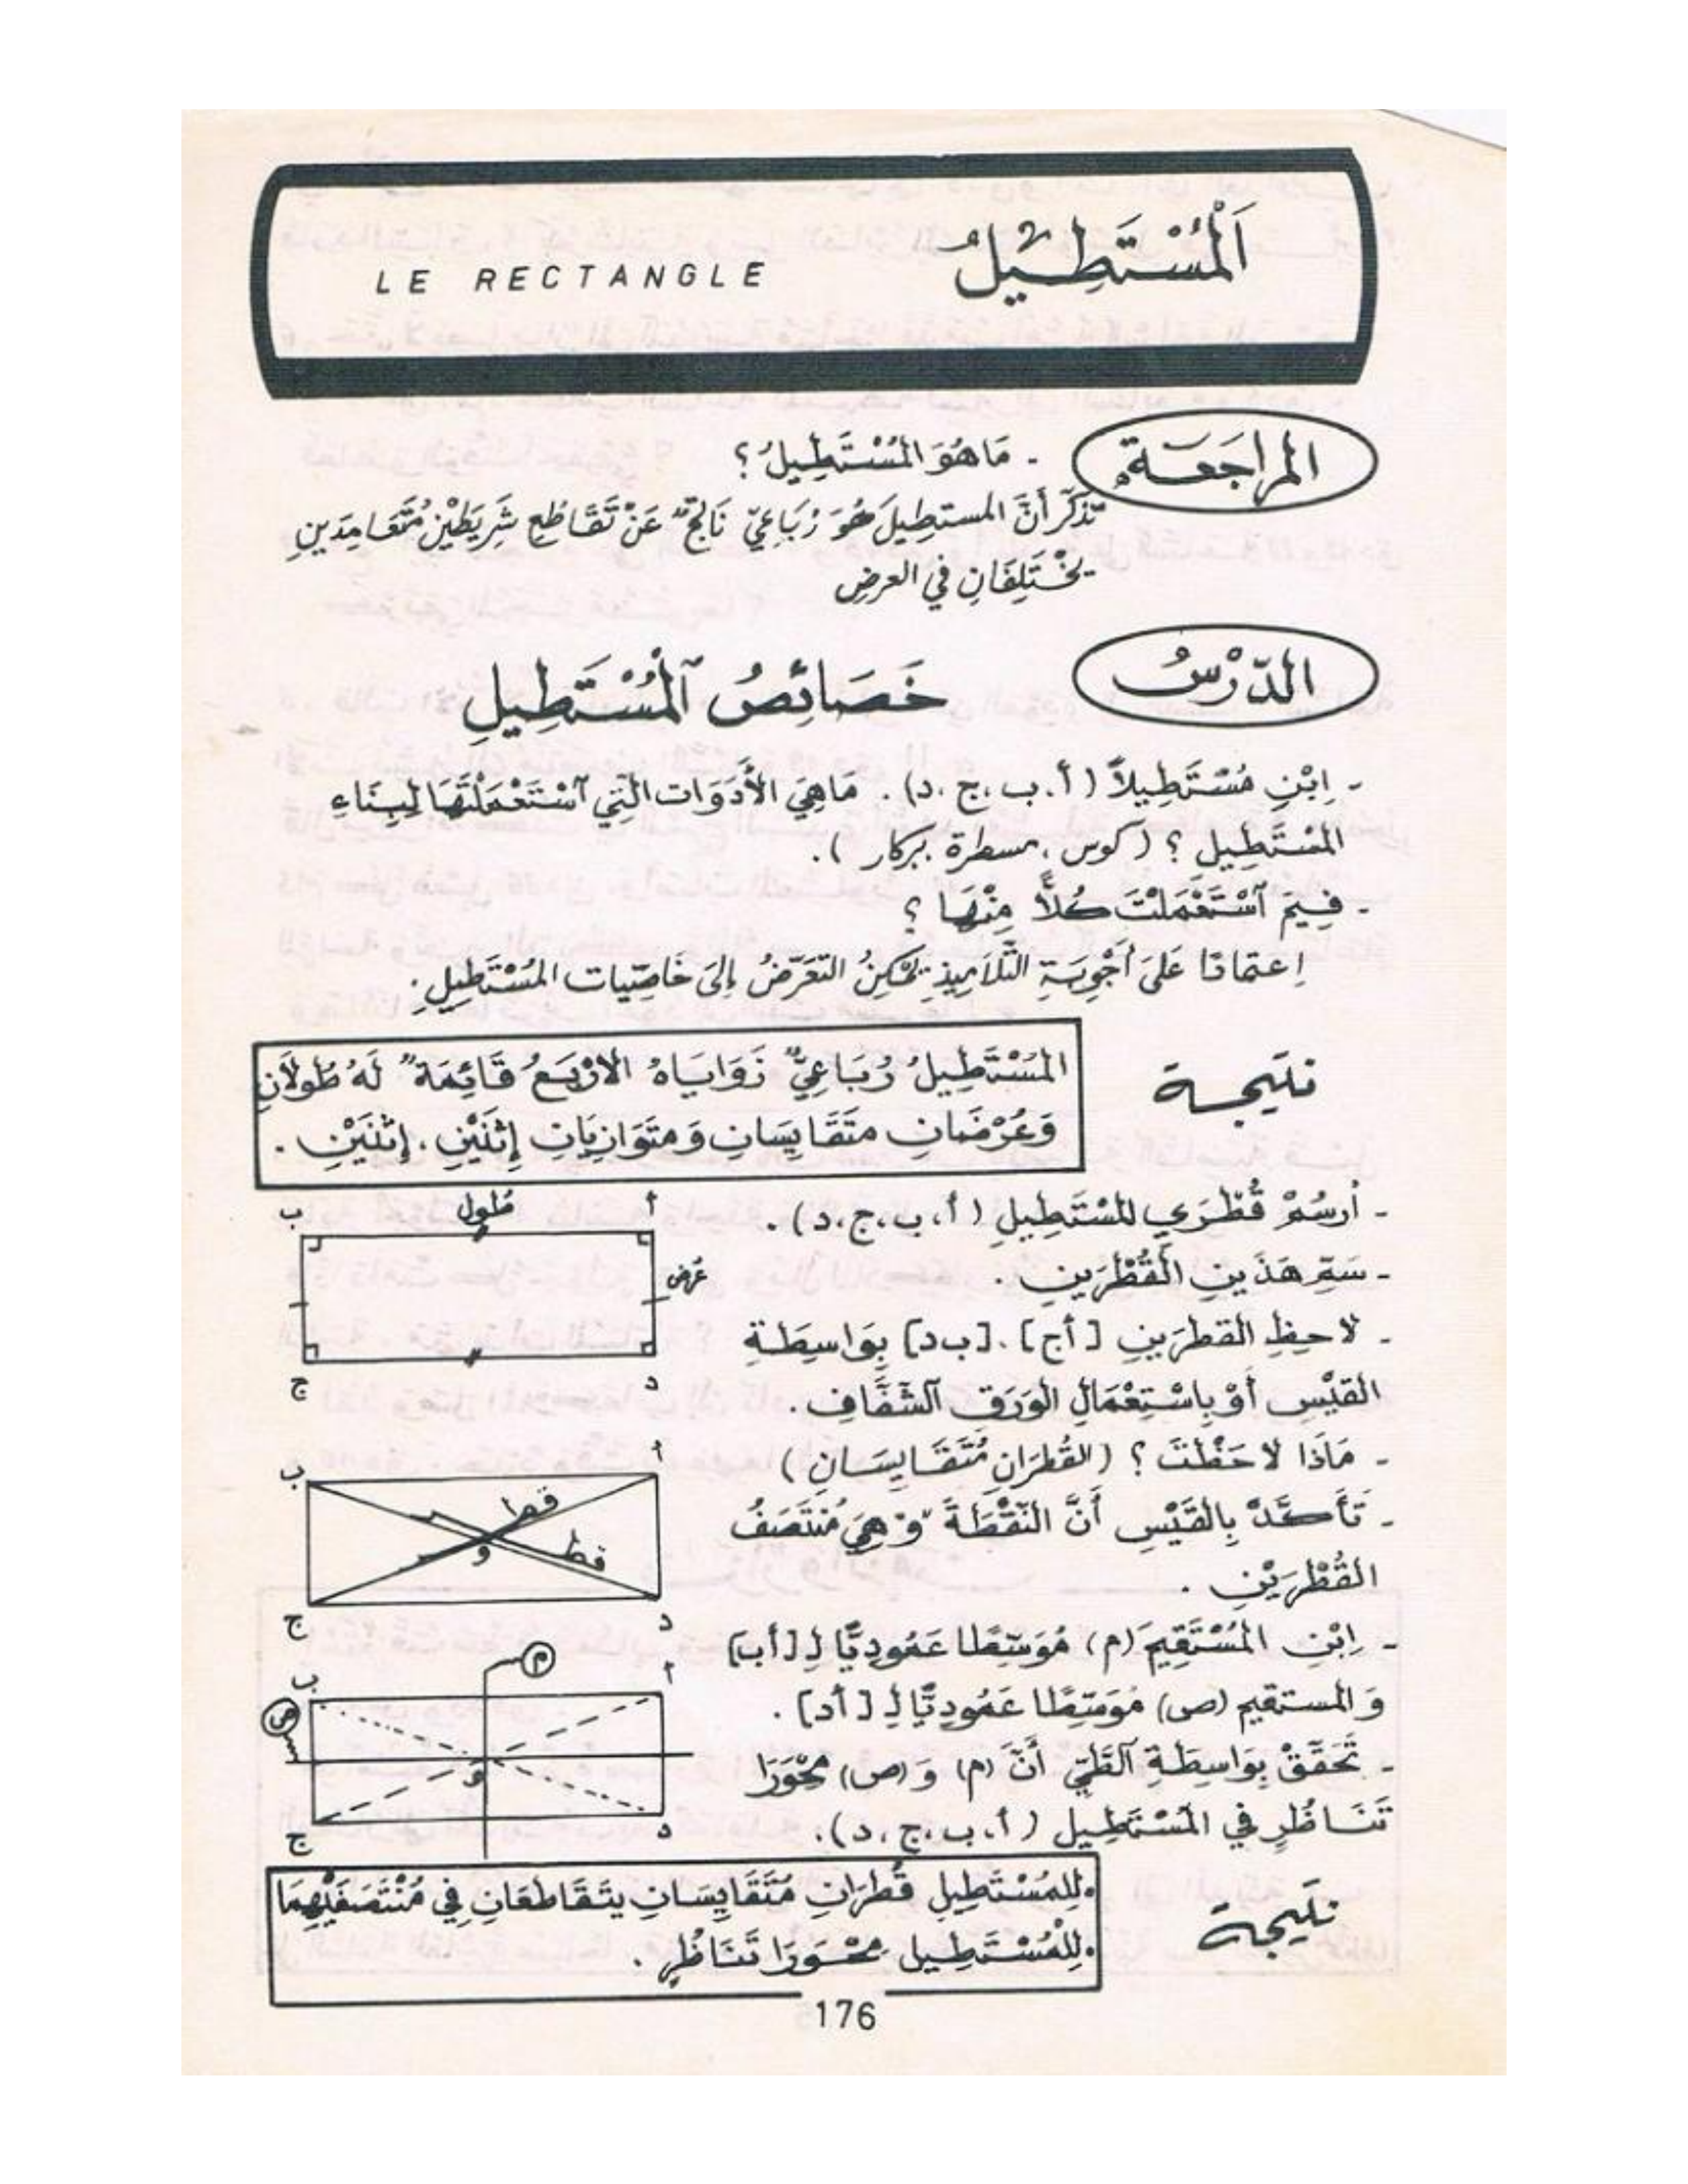 اَلْمُسْتَطِيلُ
LE RECTANGLE
المراجَعَة
- مَا هُوَ المُسْتَطِيلُ ؟
تذكّر أَنَّ المستطِيلَ هُوَ رُبَاعِيّ نَاتِجٌ عَنْ تَقَاطُعِ شَرِيطَيْنِ مُتَعَامِدَينِ
يخْتَلِفَانِ في العرضِ
الدّرْسُ
خَصَائِصُ ٱلْمُسْتَطِيلِ
- اِبْنِ مُسْتَطِيلاً ( أ، ب ، ج ، د) . مَاهِيَ الأَدَوَات الَّتِي ٱسْتَعْمَلْتَهَا لِبِنَاءِ
المُسْتَطِيلِ ؟ ( كوس ، مسطرة ، بركار ).
- فِيمَ ٱسْتَعْمَلْتَ كُلاًّ مِنْهَا ؟
اِعتمادًا عَلَى أَجْوِبَةِ التَّلاَمِيذِ يُمْكِنُ التَعَرّضُ إِلَى خَاصِّيات المُسْتَطِيلِ.
نتيجة
المُسْتَطِيلُ رُبَاعِيٌّ زَوَايَاهُ الأَرْبَعُ قَائِمَةٌ لَهُ طُولاَنِ
وَعُرْضَانِ مُتَقَايِسَانِ وَمتَوَازِيَانِ إِثْنَيْنِ ، إِثْنَيْنِ .
- أُرسُمْ قُطْرَي المُسْتَطِيلِ ( أ، ب ، ج ، د ) .
ب طول أ
- سَمِّ هَذَينِ القُطْرَينِ .
عرض
- لاحِظِ القطرَينِ [أج] ، [ب د] بِوَاسِطَةِ
ج د
القَيْسِ أَوْ بِاسْتِعْمَالِ الوَرَقِ ٱلشَّفَّافِ .
- مَاذَا لاَحَظْتَ ؟ ( القُطرَانِ مُتَقَايِسَانِ )
ب أ
قطر
قطر
و
- تَأَكَّدْ بِالقَيْسِ أَنَّ النّقْطَةَ "و" هِيَ مُنْتَصَفُ
القُطْرَيْنِ .
ج د
- اِبْنِ المُسْتَقِيمَ (م) مُوَسِّطًا عَمُودِيًّا لِـ [أب]
م
ب أ
وَ المستقيم (ص) مُوَسِّطًا عَمُودِيًّا لِـ [أد] .
ص
- تَحَقَّقْ بِوَاسِطَةِ ٱلطَّيّ أَنَّ (م) وَ (ص) مِحْوَرَا
و
تَنَاظُرٍ في المُسْتَطِيل ( أ، ب ، ج ، د).
ج د
نتيجة
• لِلمُسْتَطِيلِ قُطرَانِ مُتَقَايِسَانِ يتَقَاطَعَانِ فِي مُنْتَصَفَيْهِمَا
• لِلْمُسْتَطِيل مِحْوَرَا تَنَاظُرٍ .
176